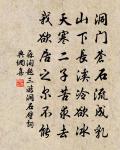 洞門蒼石流成乳
山下長溪冷欲冰
天寒二子苦求去
我欲居之尔不能
蘇洵題三游洞石壁